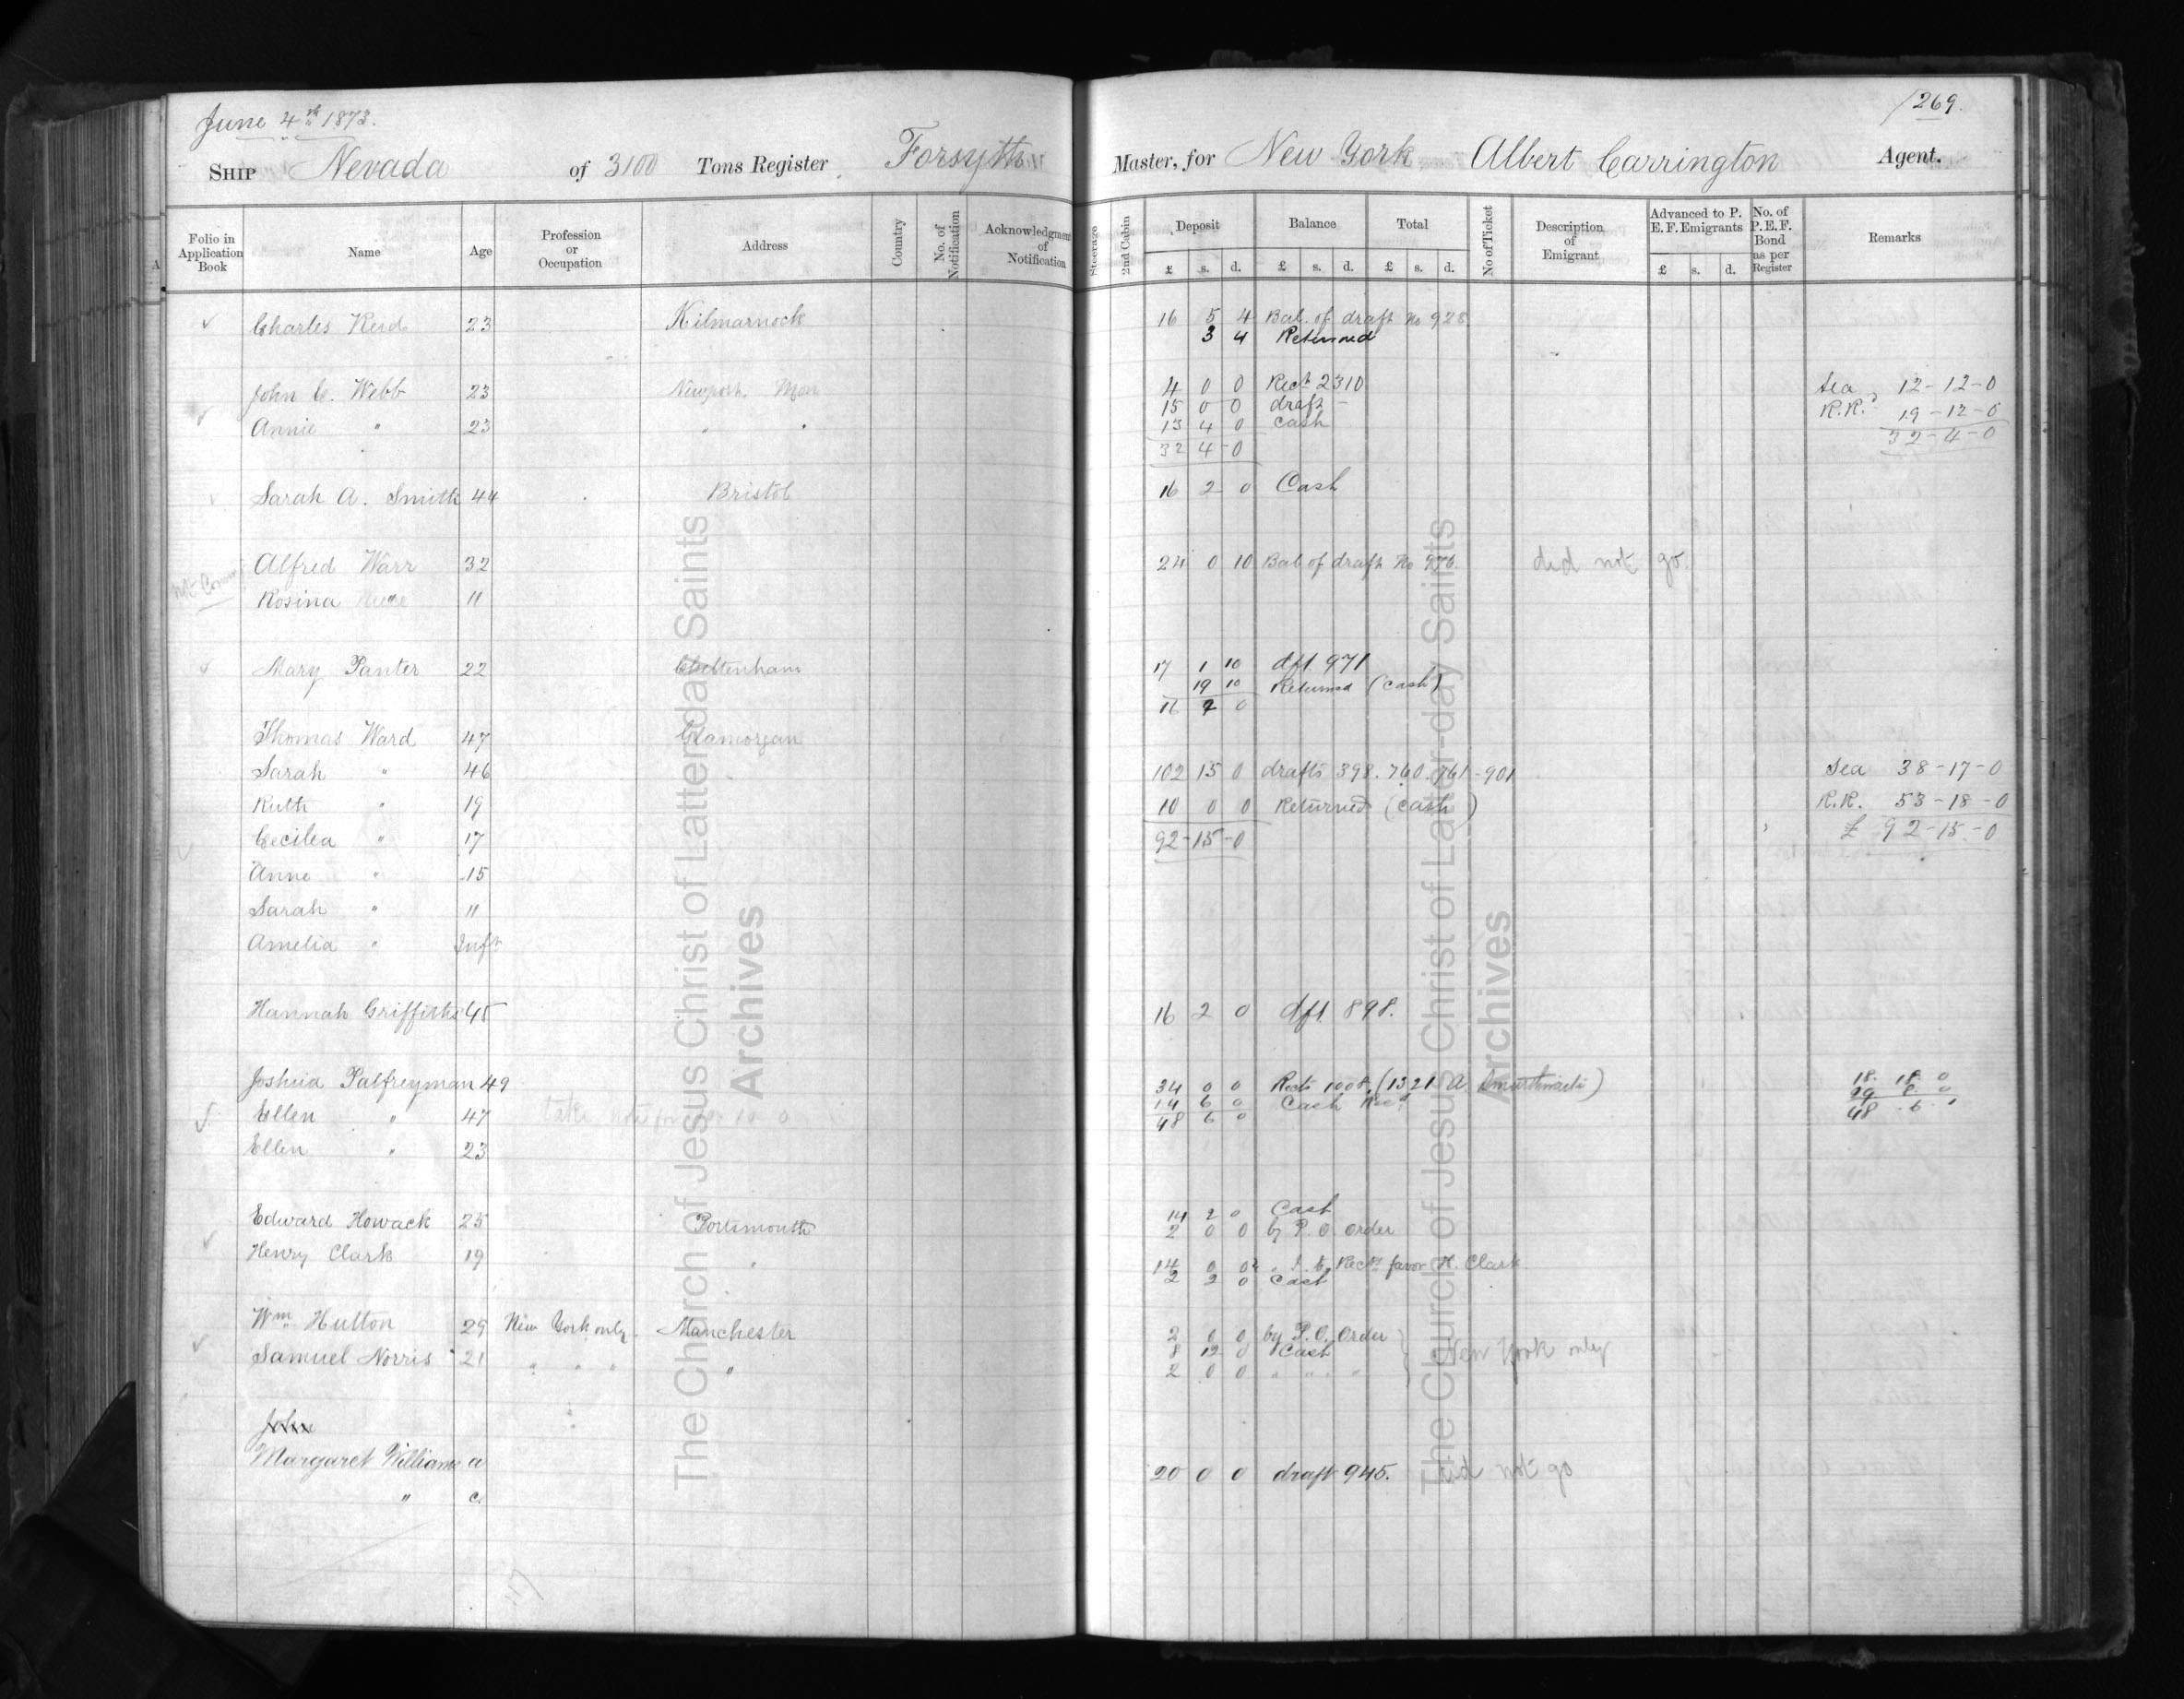 June 4th 1873.
269.
SHIP Nevada of 3100 Tons Register Forsyth Master, for New York Albert Carrington Agent.
Folio in Application Book
Name
Age
Profession or Occupation
Address
Country
No. of Notification
Acknowledgment of Notification
Steerage
2nd Cabin
Deposit
£ s. d.
Balance
£ s. d.
Total
£ s. d.
No of Ticket
Description of Emigrant
Advanced to P. E. F. Emigrants
£ s. d.
No. of P.E.F. Bond as per Register
Remarks
Charles Reid 23 Kilmarnock 16 5 4 Bal. of draft No 928
3 4 Returned
John C. Webb 23 Newport, Mon 4 0 0 Rect 2310 Sea 12-12-0
15 0 0 draft - R.R. 19-12-0
Annie " 23 " " 13 4 0 cash 32-4-0
32 4-0
Sarah A. Smith 44 Bristol 16 2 0 Cash
Alfred Warr 32 24 0 10 Bal of draft No 976. did not go.
Rosina " 11
Mary Panter 22 Cheltenham 17 1 10 dft. 971
19 10 Returned (cash)
16 2 0
Thomas Ward 47 Glamorgan
Sarah " 46 102 15 0 drafts 398. 760. 761-901 Sea 38-17-0
Ruth " 19 10 0 0 Returned (cash) R.R. 53-18-0
Cecilea " 17 92-15-0 £ 92-15-0
Anne " 15
Sarah " 11
Amelia " Inft
Hannah Griffiths 45 16 2 0 dft 898.
Joshua Palfreyman 49 34 0 0 Rects 1008, (1321 A 18. 18. 0
Ellen " 47 14 6 0 Cash Recd 29 8. 0
48 6 0 48 . 6 .
Ellen " 23
Edward Howack 25 Portsmouth 14 2 0 Cash
2 0 0 by P. O. Order
Henry Clark 19 " 14 0 0 Rect favor H. Clark
2 2 0 Cash
Wm Hutton 29 New York only. Manchester 2 0 0 by P.O. Order
Samuel Norris 21 " " " " 8 12 0 Cash New York only
2 0 0 " " " "
John
Margaret Williams a 20 0 0 draft 945. did not go
" c.
The Church of Jesus Christ of Latter-day Saints
Archives
The Church of Jesus Christ of Latter-day Saints
Archives